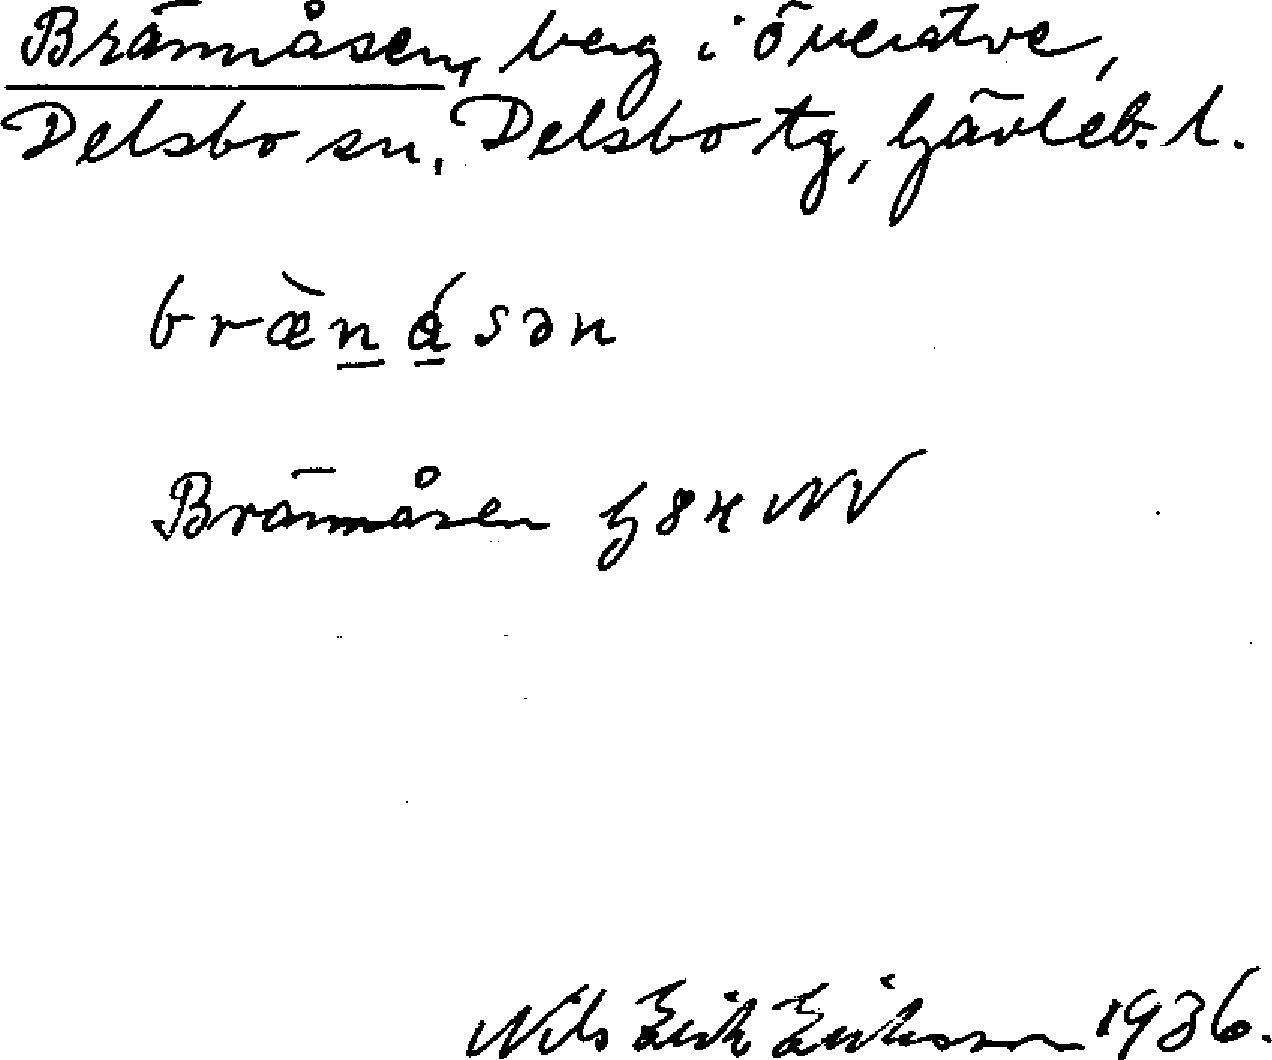 Brännåsen, berg i Överälve,
Delsbo sn, Delsbo tg, Gävleb. l.
bræ̀n̲á̲sən
Brännåsen G 84 NV
Nils Erik Eriksson 1936.